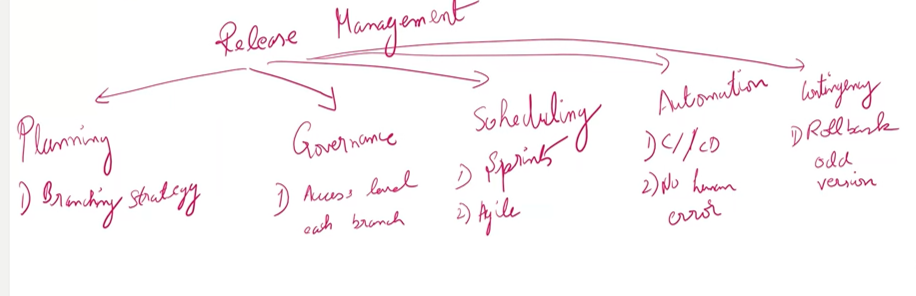 Release Management
Planning
1) Branching strategy
Governance
1) Access level
each branch
Scheduling
1) Sprints
2) Agile
Automation
1) CI/CD
2) No human
error
Contingency
1) Rollback
old
version